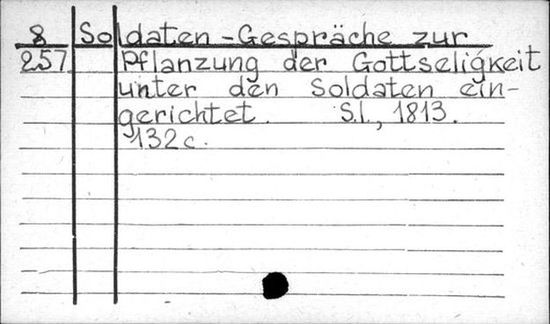 8 Soldaten-Gespräche zur
257 Pflanzung der Gottseligkeit
unter den Soldaten ein-
gerichtet. S.l., 1813.
132 c.